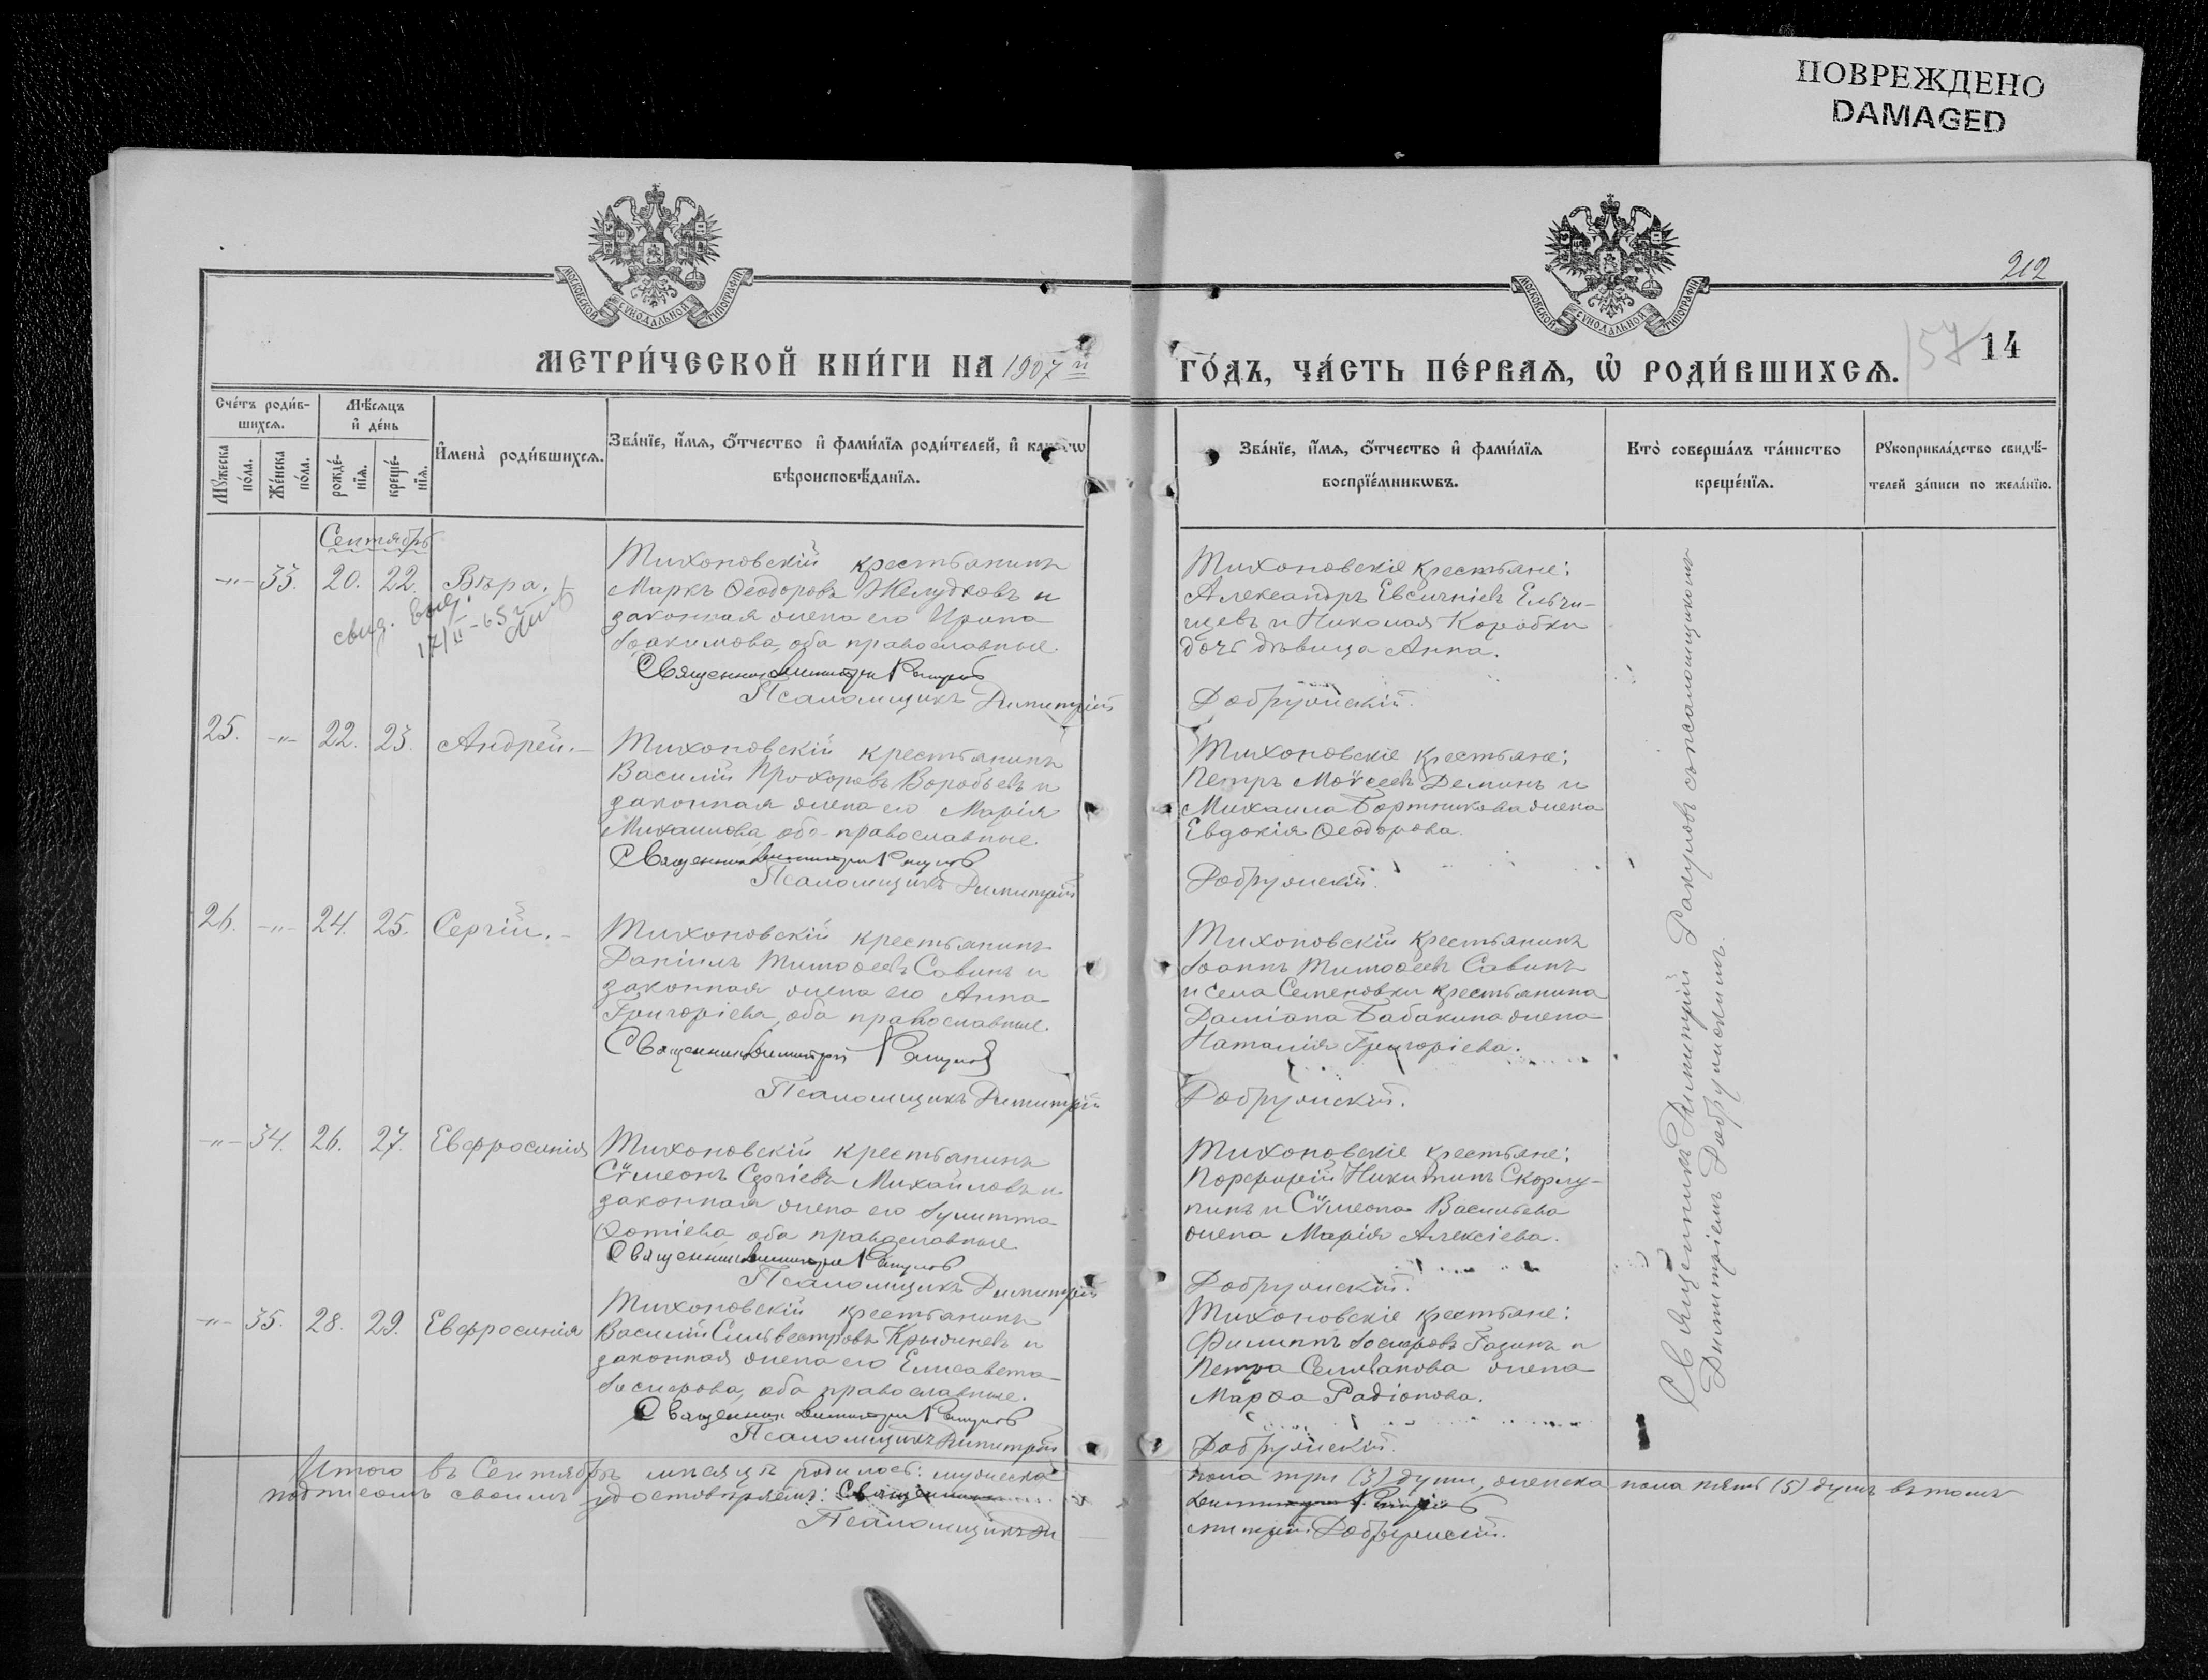 ПОВРЕЖДЕНО
DAMAGED
МОСКОВСКОЙ СѴНОДАЛЬНОЙ ТИПОГРАФІИ
МОСКОВСКОЙ СѴНОДАЛЬНОЙ ТИПОГРАФІИ
212
МЕТРИ́ЧЕСКОЙ КНИ́ГИ НА 1907 й
ГО́ДЪ, ЧА́СТЬ ПЕ́РВАѦ, Ѡ РОДИ́ВШИХСѦ.
157
14
Сче́тъ роди́в-
шихсѧ.
Мꙋжеска по́ла.
Же́нска по́ла.
Мѣ́сѧцъ
и де́нь
рожде́-
нїѧ.
креще́-
нїѧ.
Имена̀ роди́вшихсѧ.
Зва́нїе, и́мѧ, ѻ́тчество и фами́лїѧ роди́телей, и
вѣроисповѣ́данїѧ.
Зва́нїе, и́мѧ, ѻ́тчество и фами́лїѧ
воспрїе́мникѡвъ.
Кто̀ соверша́лъ та́инство
креще́нїѧ.
Рꙋкоприкла́дство свидѣ́-
телей за́писи по жела́нїю.
Сентябрь
-"- 33. 20. 22. Вѣра.
свид. выд.
Тихоновскій крестьянинъ
Маркъ Ѳеодоровъ Желудковъ и
законная жена его Ирина
Іоакимова, оба православные.
Священникъ Димитрій Ракуровъ
Псаломщикъ Димитрій
Тихоновскіе крестьяне:
Александръ Евсигніевъ Ельчи-
щевъ и Николая Коробки
дочь дѣвица Анна.
Добруйскій.
25. -"- 22. 23. Андрей.
Тихоновскій крестьянинъ
Василій Прохоровъ Воробьевъ и
законная жена его Марія
Михаилова, оба православные.
Священникъ Димитрій Ракуровъ
Псаломщикъ Димитрій
Тихоновскіе крестьяне:
Петръ Моѵсеевъ Деминъ и
Михаила Бортникова жена
Евдокія Ѳеодорова.
26. -"- 24. 25. Сергій.
Тихоновскій крестьянинъ
Даніилъ Тимоѳеевъ Савинъ и
законная жена его Анна
Григоріева, оба православные.
Священникъ Димитрій Ракуровъ
Псаломщикъ Димитрій
Тихоновскій крестьянинъ
Іоаннъ Тимоѳеевъ Савинъ
и села Семеновки крестьянина
Даміана Бабакина жена
Наталія Григоріева.
-"- 34. 26. 27. Евфросинія
Тихоновскій крестьянинъ
Сѵмеонъ Сергіевъ Михайловъ и
законная жена его Іулитта
Фотіева, оба православные
Священникъ Димитрій Ракуровъ
Псаломщикъ Димитрій
Тихоновскіе крестьяне:
Порфирій Никитинъ Скорлу-
пинъ и Сѵмеона Васильева
жена Марія Алексіева.
-"- 35. 28. 29. Евфросинія
Тихоновскій крестьянинъ
Василій Сильвестровъ и
законная жена его Елисавета
Іосифова, оба православные.
Священникъ Димитрій Ракуровъ
Псаломщикъ Димитрій
Тихоновскіе крестьяне:
Филиппъ Іосифовъ Газинъ и
Петра Селиванова жена
Марѳа Радіонова.
Священникъ Димитрій Ракуровъ съ псаломщикомъ
Итого въ Сентябрѣ мѣсяцѣ родилось: мужеска пола три (3) души, женска пола пять (5) душъ въ томъ
подписомъ своимъ удостовѣряемъ: Священникъ Димитрій Ракуровъ